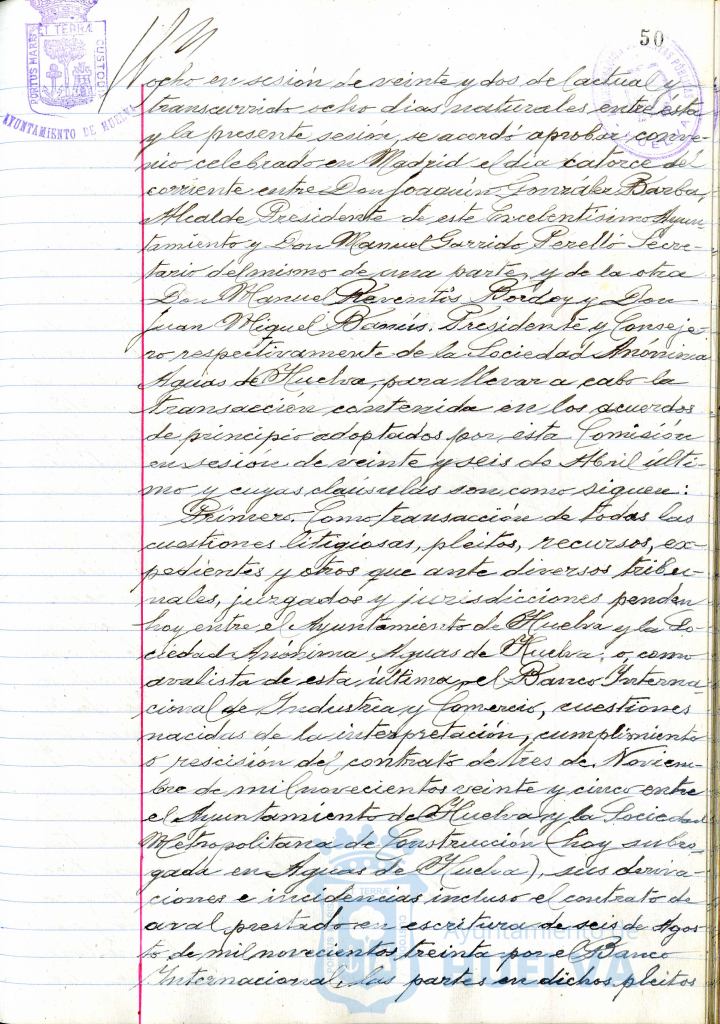 50
PORTUS MARIS ET TERRÆ CUSTODIA
AYUNTAMIENTO DE HUELVA
ocho en sesión de veinte y dos del actual y
transcurrido ocho dias naturales entre ésta
y la presente sesión, se acordó aprobar conve-
nio celebrado en Madrid el dia catorce del
corriente entre Don Joaquín González Barba,
Alcalde Presidente de este Excelentísimo Ayun-
tamiento y Don Manuel Garrido Perelló Secre-
tario del mismo de una parte, y de la otra
Don Manuel Reventós Bordoy y Don
Juan Miguel Banús, Presidente y Conseje-
ro respectivamente de la Sociedad Anónima
Aguas de Huelva, para llevar a cabo la
transacción contenida en los acuerdos
de principio adoptados por esta Comisión
en sesión de veinte y seis de Abril últi-
mo y cuyas claúsulas son como siguen:
Primero. Como transacción de todas las
cuestiones litigiosas, pleitos, recursos, ex-
pedientes y otros que ante diversos tribu-
nales, juzgados y jurisdicciones penden
hoy entre el Ayuntamiento de Huelva y la So-
ciedad Anónima Aguas de Huelva, o como
avalista de esta última, el Banco Interna-
cional de Industria y Comercio, cuestiones
nacidas de la interpretación, cumplimiento
o rescisión del contrato de tres de Noviem-
bre de mil novecientos veinte y cinco entre
el Ayuntamiento de Huelva y la Sociedad
Metropolitana de Construcción (hoy subro-
gada en Aguas de Huelva), sus deriva-
ciones e incidencias incluso el contrato de
aval prestado en escritura de seis de Agos-
to de mil novecientos treinta por el Banco
Internacional, las partes en dichos pleitos
Ayuntamiento de
HUELVA